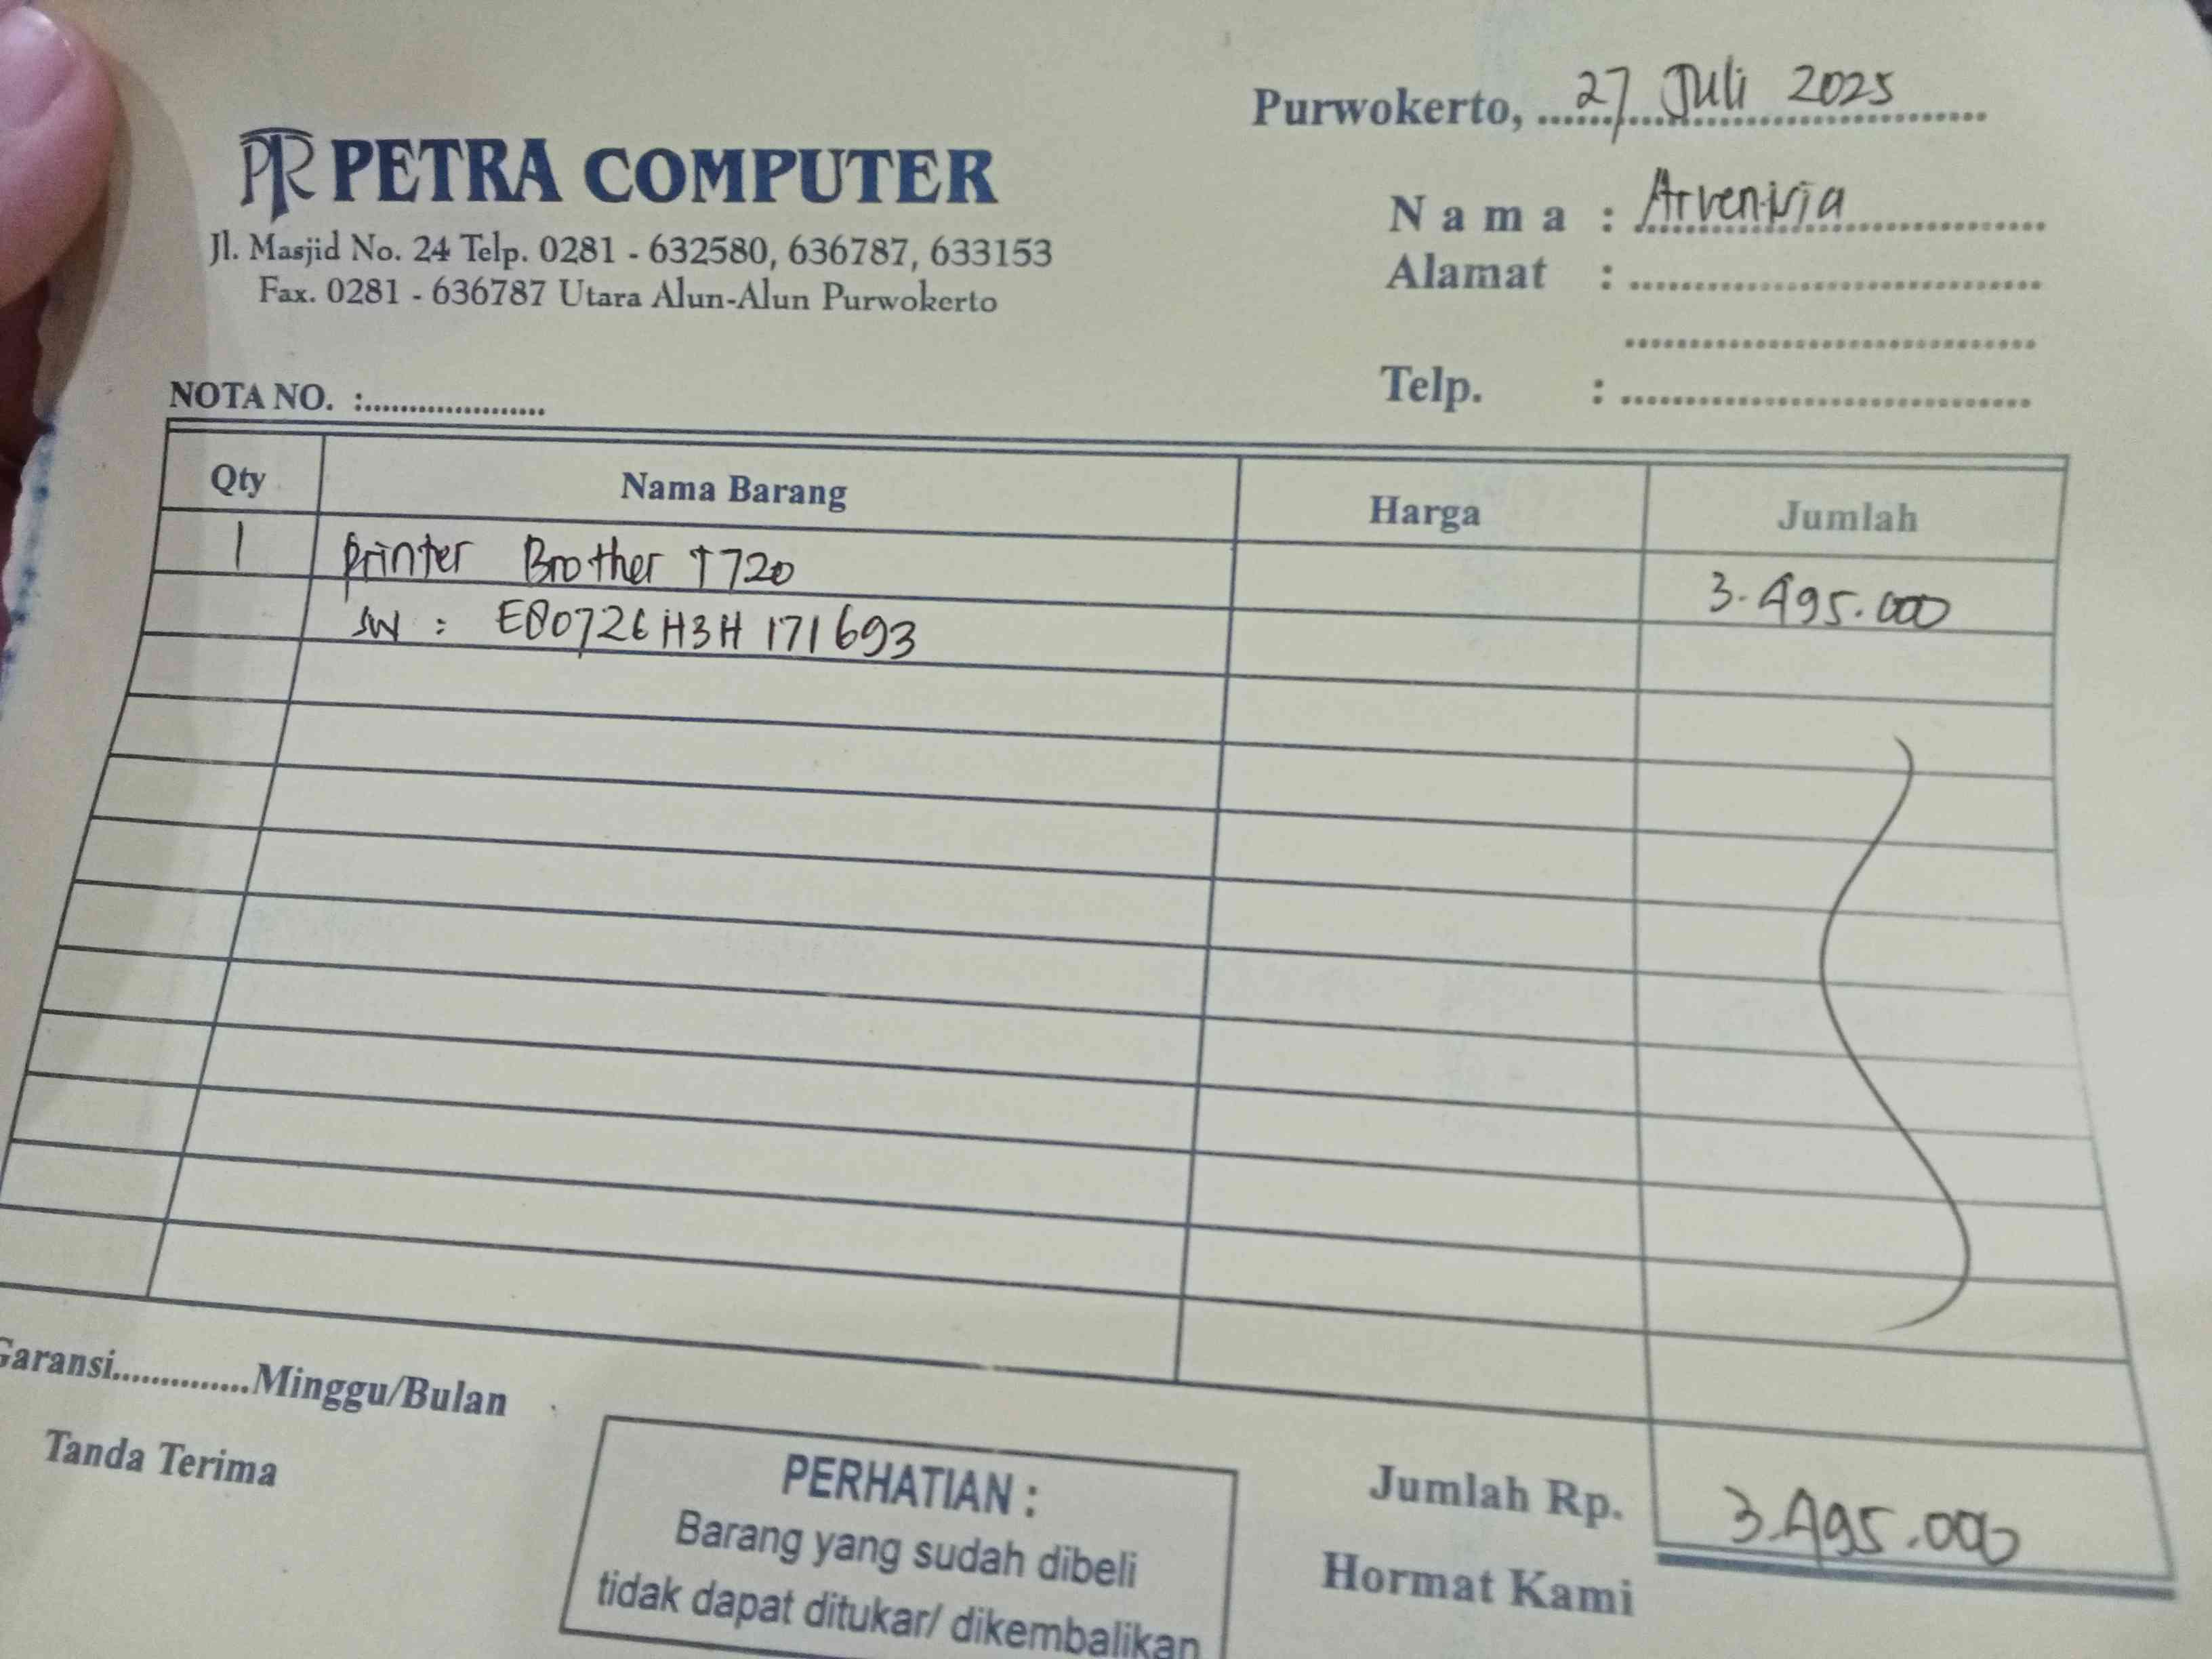 Purwokerto, 27 Juli 2025
PR PETRA COMPUTER
Jl. Masjid No. 24 Telp. 0281 - 632580, 636787, 633153
Fax. 0281 - 636787 Utara Alun-Alun Purwokerto
Nama :
Alamat :
Telp. :
NOTA NO. :
Qty Nama Barang Harga Jumlah
1 Printer Brother T720 3.495.000
SN : E80726H3H171693
Garansi..............Minggu/Bulan
Tanda Terima
PERHATIAN :
Barang yang sudah dibeli
tidak dapat ditukar/ dikembalikan
Jumlah Rp. 3.495.000
Hormat Kami